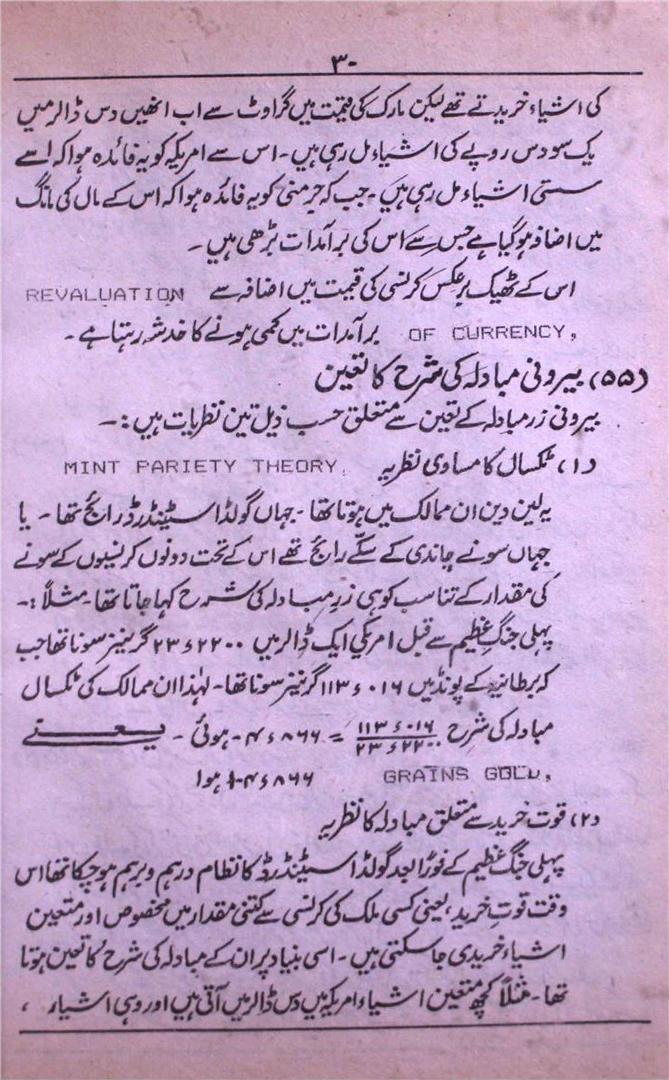 ۳۰
کی اشیاء خریدتے تھے لیکن مارک کی قیمت میں گراوٹ سے اب انھیں دس ڈالر میں
یک سو دس روپے کی اشیاء مل رہی ہیں۔ اس سے امریکہ کو یہ فائدہ ہوا کہ اسے
سستی اشیاء مل رہی ہیں۔ جب کہ جرمنی کو یہ فائدہ ہوا کہ اس کے مال کی مانگ
میں اضافہ ہو گیا ہے جس سے اس کی برآمدات بڑھی ہیں۔
اس کے ٹھیک برعکس کرنسی کی قیمت میں اضافہ سے REVALUATION
OF CURRENCY, برآمدات میں کمی ہونے کا خدشہ رہتا ہے۔
(۵۵) بیرونی مبادلہ کی شرح کا تعین
بیرونی زرمبادلہ کے تعین سے متعلق حسب ذیل تین نظریات ہیں:۔
(۱) ٹکسال کا مساوی نظریہ MINT PARIETY THEORY,
یہ لین دین ان ممالک میں ہوتا تھا۔ جہاں گولڈ اسٹینڈرڈ رائج تھا۔ یا
جہاں سونے چاندی کے سکّے رائج تھے اس کے تحت دونوں کرنسیوں کے سونے
کی مقدار کے تناسب کو ہی زرِ مبادلہ کی شرح کہا جاتا تھا۔ مثلاً:۔
پہلی جنگ عظیم سے قبل امریکی ایک ڈالر میں ۲۳ء۲۲۰۰ گرینز سونا تھا جب
کہ برطانیہ کے پونڈ میں ۱۱۳ء۰۱۶ گرینز سونا تھا۔ لہٰذا ان ممالک کی ٹکسال
مبادلہ کی شرح ۱۱۳ء۰۱۶ / ۲۳ء۲۲۰۰ = ۴ء۸۶۶۔ ہوئی۔ یعنے
GRAINS GOLD, ۴ء۸۶۶ ہوا
(۲) قوت خرید سے متعلق مبادلہ کا نظریہ
پہلی جنگ عظیم کے فوراً بعد گولڈ اسٹینڈرڈ کا نظام درہم و برہم ہو چکا تھا اس
وقت قوتِ خرید، یعنی کسی ملک کی کرنسی سے کتنی مقدار میں مخصوص اور متعین
اشیاء خریدی جا سکتی ہیں۔ اسی بنیاد پر ان کے مبادلہ کی شرح کا تعین ہوتا
تھا۔ مثلاً کچھ متعین اشیاء امریکہ میں دس ڈالر میں آتی ہیں اور وہی اشیاء،